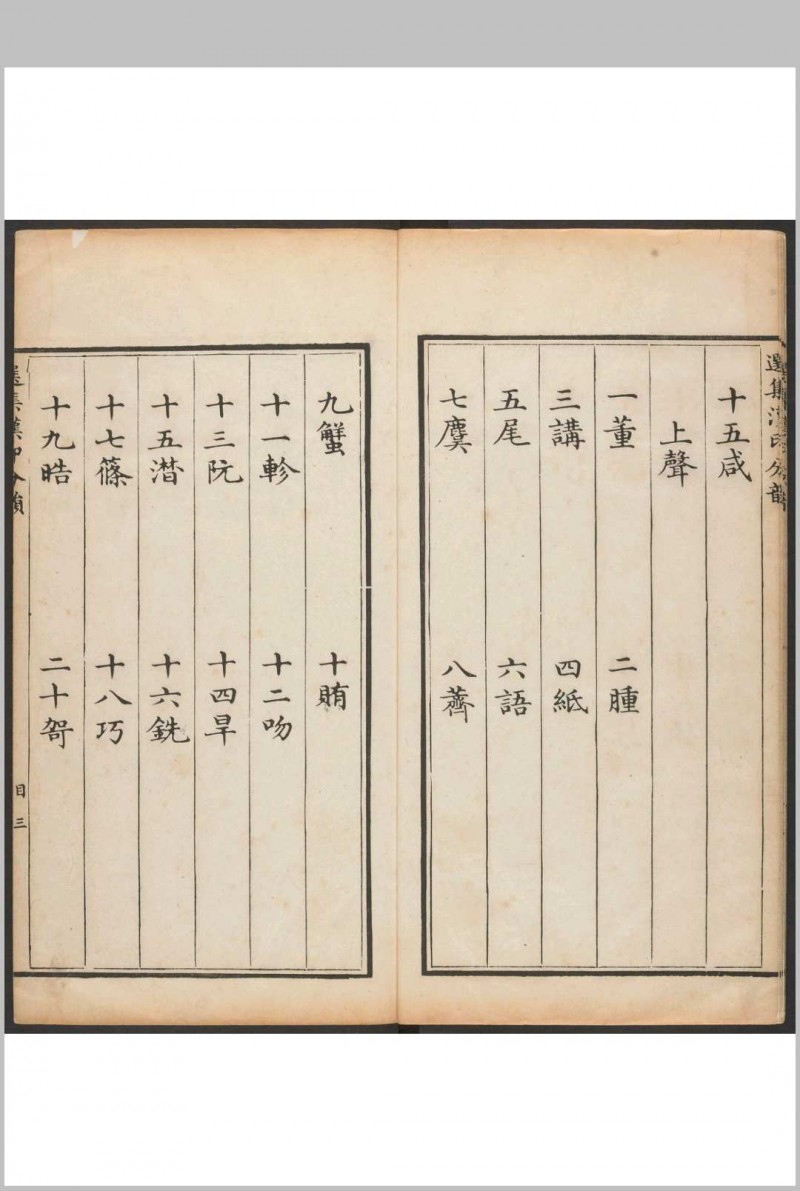 選集漢印分韻
十五咸
上聲
一董 二腫
三講 四紙
五尾 六語
七麌 八薺
九蟹 十賄
十一軫 十二吻
十三阮 十四旱
十五澘 十六銑
十七篠 十八巧
十九晧 二十哿
選集漢印分韻 目三